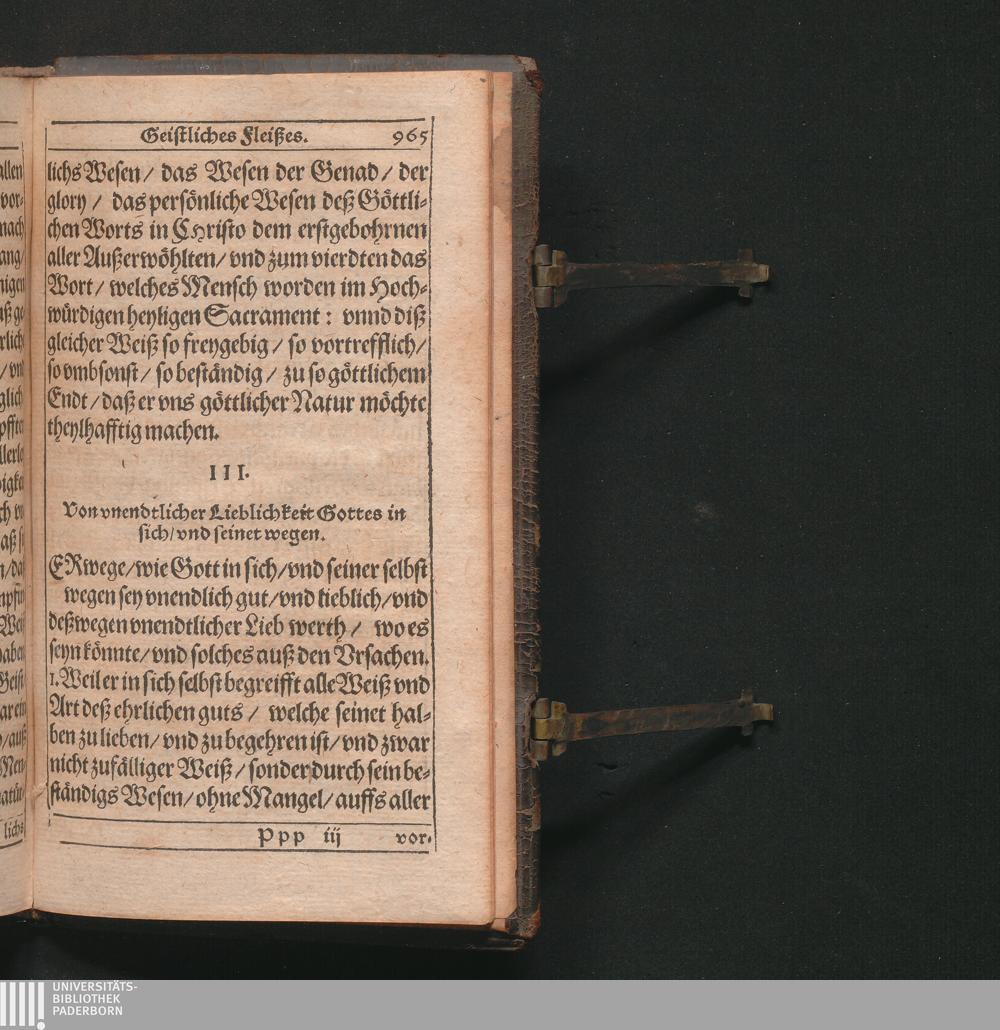 Geistliches Fleißes. 965
lichs Wesen / das Wesen der Genad / der
glory / das persönliche Wesen deß Göttli-
chen Worts in CHristo dem erstgebohrnen
aller Außerwöhlten / vnd zum vierdten das
Wort / welches Mensch worden im Hoch-
würdigen heyligen Sacrament: vnnd diß
gleicher Weiß so freygebig / so vortrefflich /
so vmbsonst / so beständig / zu so göttlichem
Endt / daß er vns göttlicher Natur möchte
theylhafftig machen.
III.
Von vnendtlicher Lieblichkeit Gottes in
sich / vnd seinet wegen.
ERwege / wie Gott in sich / vnd seiner selbst
wegen sey vnendlich gut / vnd lieblich / vnd
deßwegen vnendtlicher Lieb werth / wo es
seyn könnte / vnd solches auß den Vrsachen.
1. Weil er in sich selbst begreifft alle Weiß vnd
Art deß ehrlichen guts / welche seinet hal-
ben zu lieben / vnd zu begehren ist / vnd zwar
nicht zufälliger Weiß / sonder durch sein be-
ständigs Wesen / ohne Mangel / auffs aller
Ppp iij vor-
lichs
UNIVERSITÄTS-
BIBLIOTHEK
PADERBORN